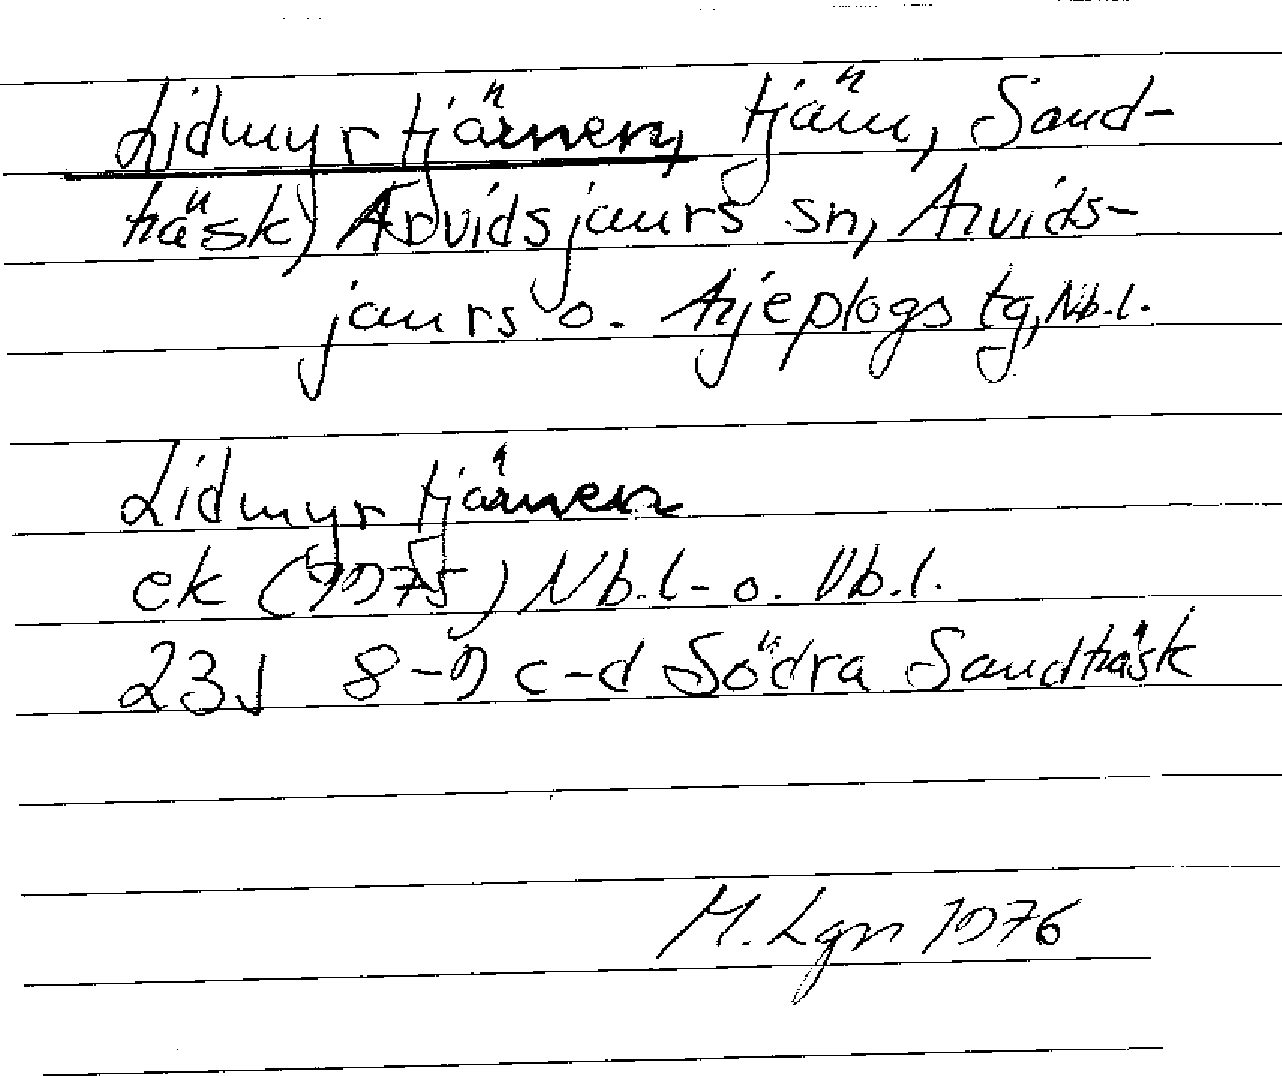 Lidmyrtjärnen, tjärn, Sand-
träsk, Arvidsjaurs sn, Arvids-
jaurs o. Arjeplogs tg, Nb.l.
Lidmyrtjärnen
ek (1975) Nb.l. o. Vb.l.
23J 8-9 c-d Södra Sandträsk
M. Lgn 1976